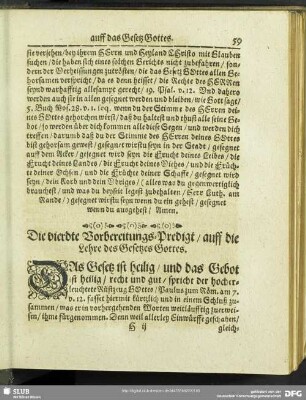 auff das Gesetz Gottes. 59
sie versehen/ bey ihrem HErrn und Heyland Christo mit Glauben
suchen/ die haben sich eines solchen Berichts nicht zubefahren/ son-
dern der Verheissungen zutrösten/ die das Gesetz GOttes allen Ge-
horsamen verspricht/ da es denn heisset/ die Rechte des HERRN
seynd warhafftig allesampt gerecht/ 19. Psal. v. 12. Und daherο
werden auch sie in allen gesegnet werden und bleiben/ wie Gott sagt/
5. Buch Mos. 28. v. 1. seq. wenn du der Stimme des HErren dei-
nes GOttes gehorchen wirst/ daß du haltest und thust alle seine Ge-
bot/ so werden über dich kommen alle diese Segen/ und werden dich
treffen/ darumb daß du der Stimme des HErren deines GOttes
bist gehorsam gewest/ gesegnet wirstu seyn in der Stadt/ gesegnet
auff dem Acker/ gesegnet wird seyn die Frucht deines Leibes/ die
Frucht deines Landes/ die Frucht deines Viehes/ und die Früch-
te deiner Ochsen/ und die Früchte deiner Schaffe/ gesegnet wird
seyn/ dein Korb und dein Übriges/ (alles was du gegenwertiglich
brauchest/ und was du beyseit legest zubehalten/ Herr Luth. am
Rande/) gesegnet wirstu seyn wenn du ein gehest/ gesegnet
wenn du ausgehest/ Amen.
Die vierdte Vorbereitungs-Predigt/ auff die
Lehre des Gesetzes Gottes.
DAs Gesetz ist heilig/ und das Gebot
ist heilig/ recht und gut/ spricht der hocher-
leuchtete Rüstzeug GOttes/ Paulus zum Röm. am 7.
v. 12. fasset hiermit kürtzlich und in einem Schluß zu-
sammen/ was er in vorhergehenden Worten weitläufftig zuerwei-
sen/ ihme fürgenommen. Denn weil allerley Einwürffe geschahen/
H ij gleich-
SLUB